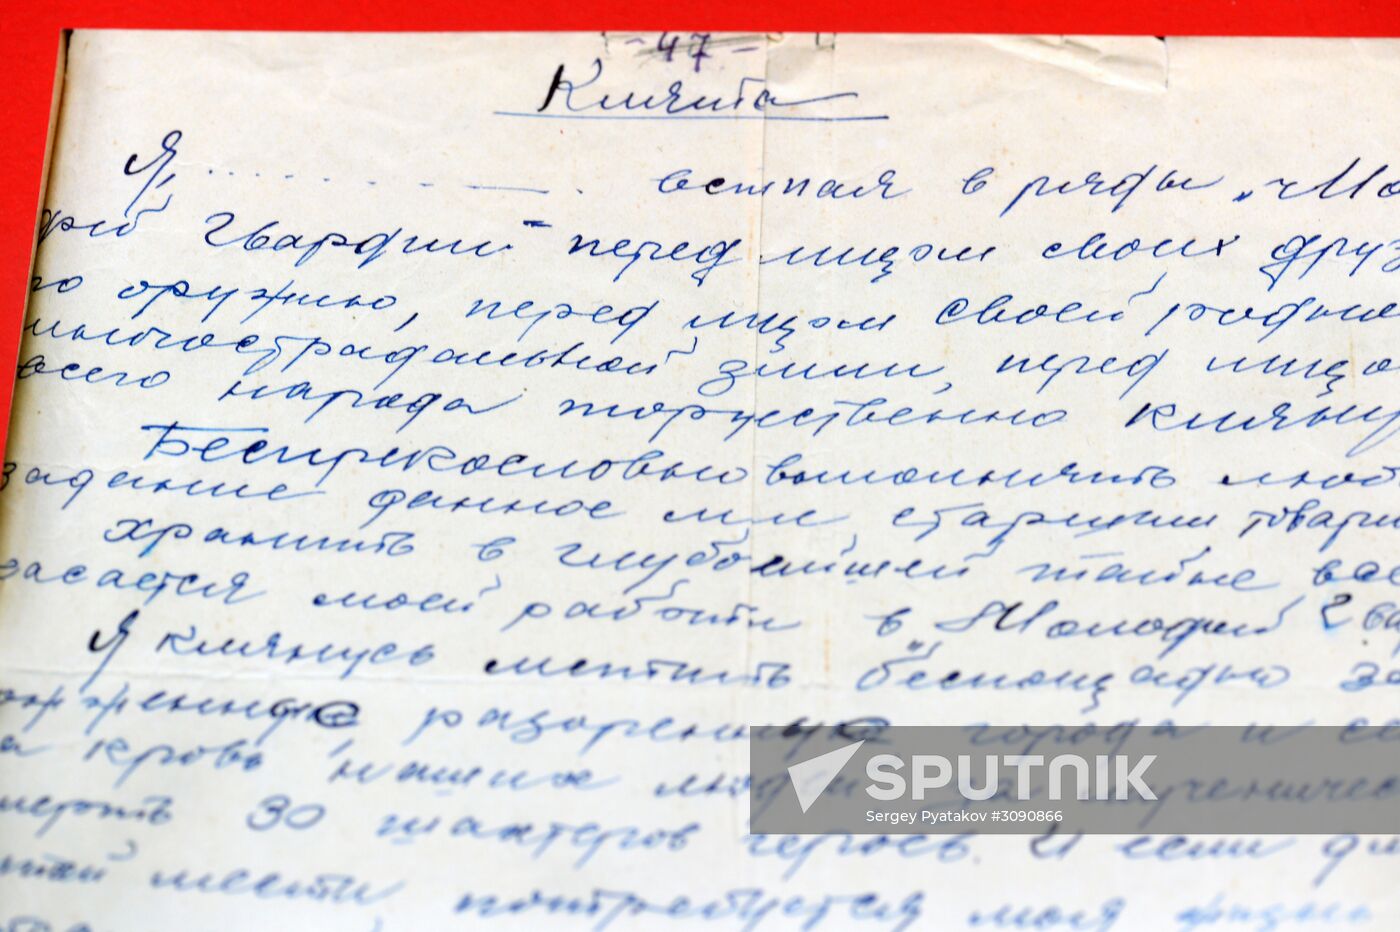 - 47 -
Клятва
Я, . . . . . . . . вступая в ряды „Мо
дой Гвардии" перед лицом своих друз
по оружию, перед лицом своей родно
многострадальной земли, перед лицо
всего народа торжественно клянус
Беспрекословно выполнять люб
задание данное мне старшим товари
хранить в глубочайшей тайне все
касается моей работы в „Молодой Гвар
Я клянусь мстить беспощадно за
разоренные города и се
а кровь наших людей, за мученическ
мерть 30 шахтеров героев. И если д
этой мести, потребуется моя жизнь
SPUTNIK
Sergey Pyatakov #3090866